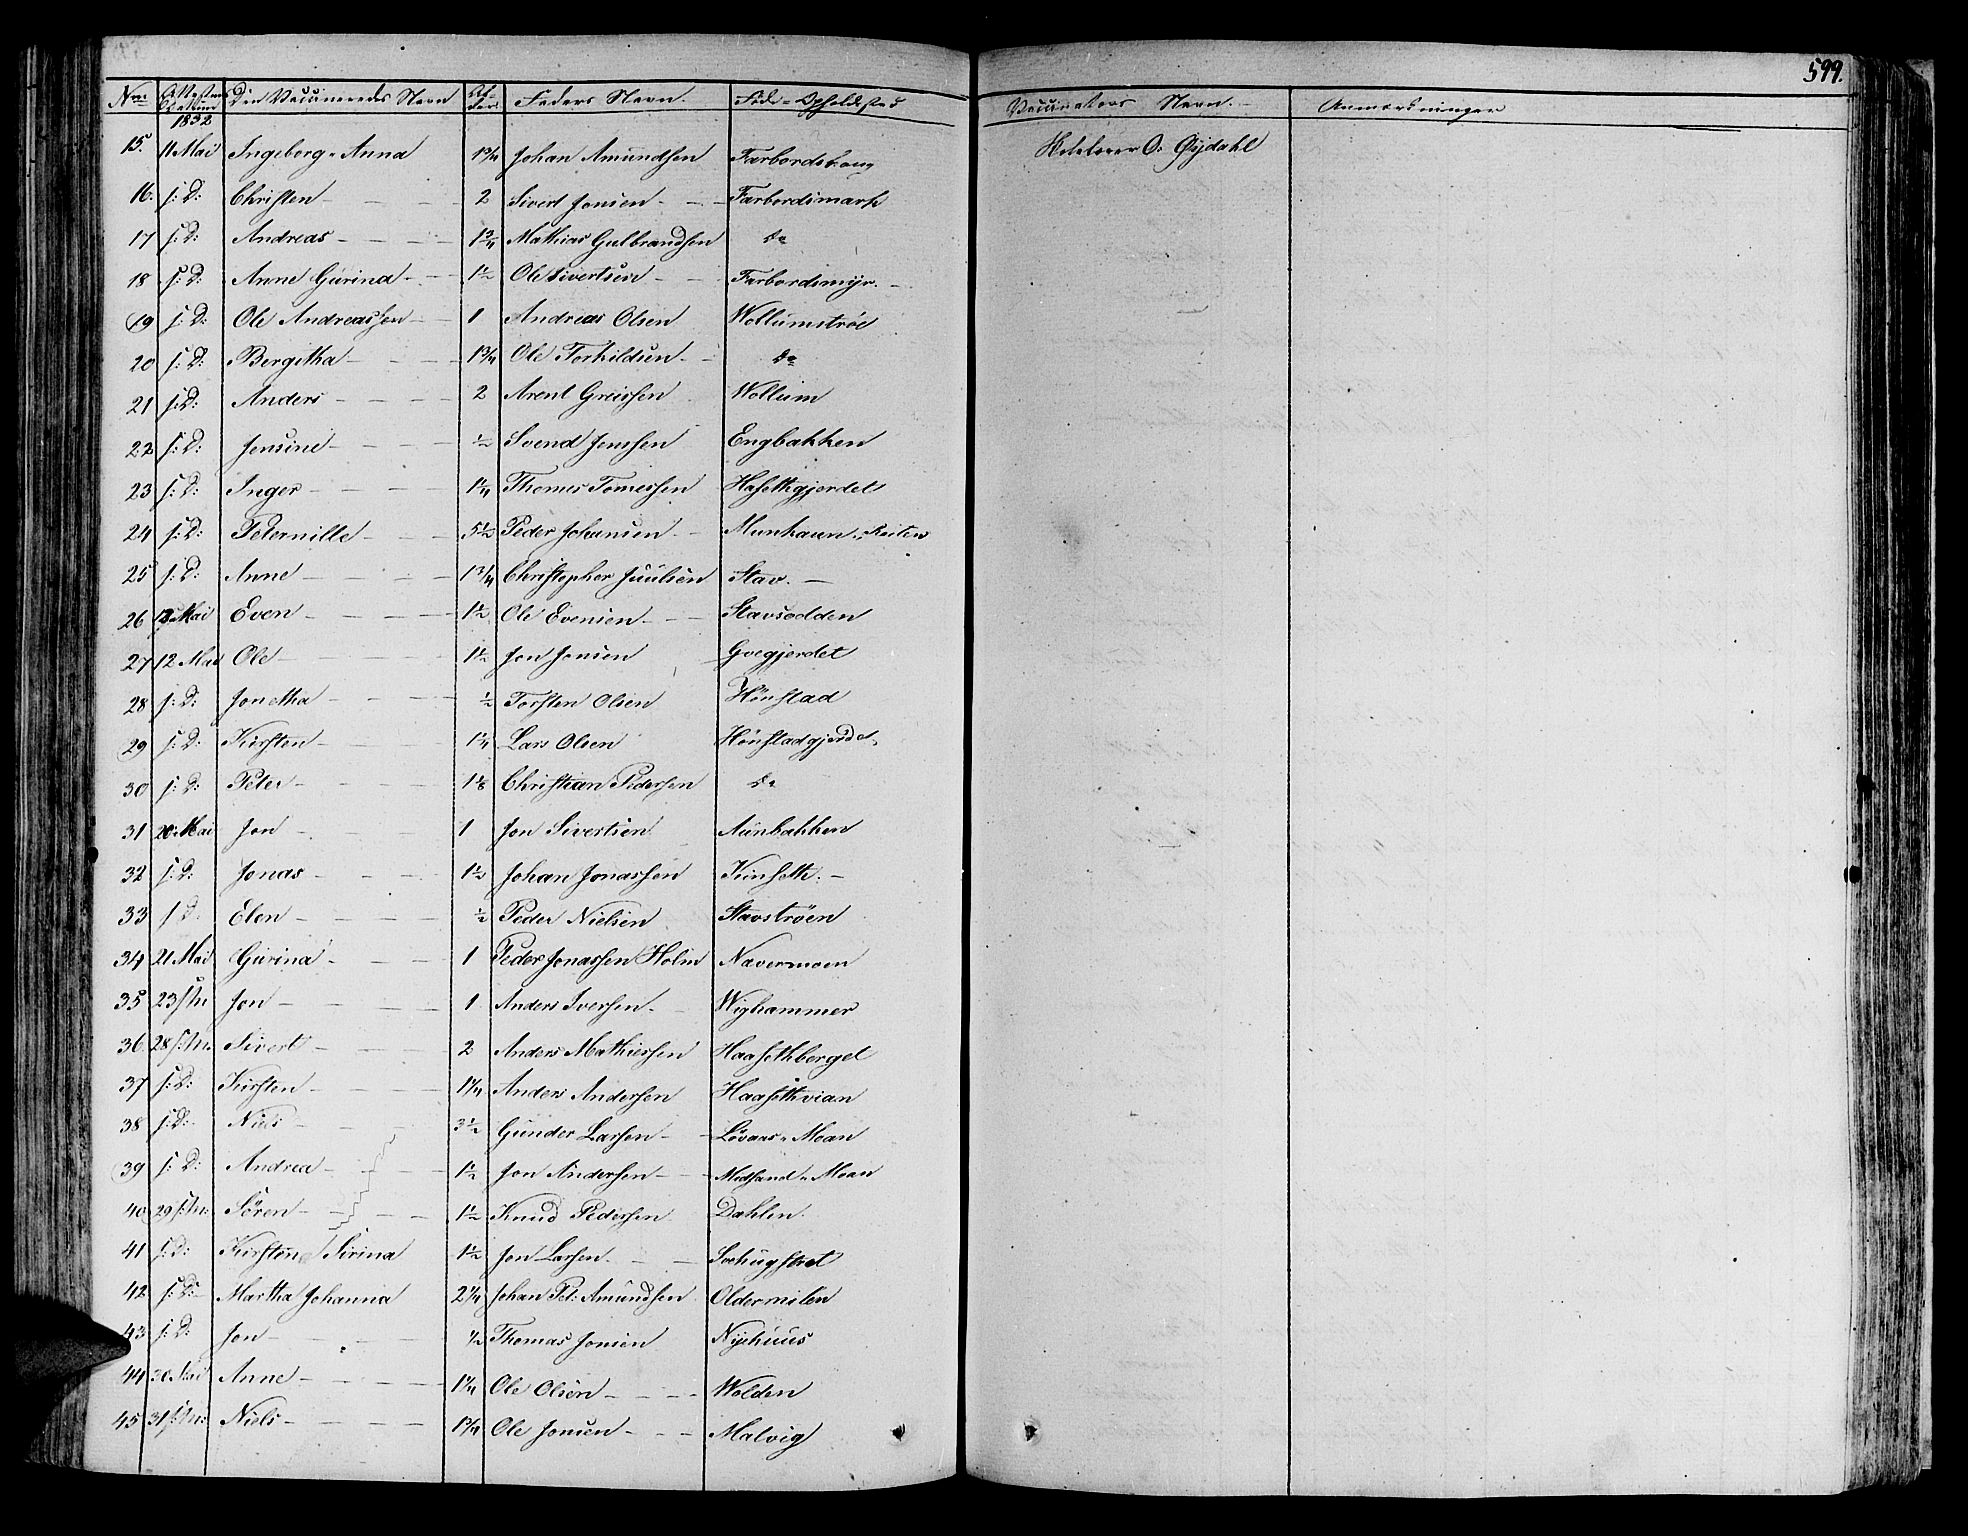 599.
No: Attestens Datum Den Vaccineredes Navn Alder Faders Navn. Føde- Opholdssted Vaccinateurs Navn. Anmærkninger
1832
15. 11 Mai Ingeborg Anna 1 3/4 Johan Amundsen O. Øijdahl
16. s: D: Christen 2 Sivert Jonsen Farbordsmark
17 s: D: Andreas 1 3/4 Mathias Gulbrandsen do
18 s: D: Anne Gurina 1 1/2 Ole Sivertsen Farbordsmyr.
19 s: D: Ole Andreassen 1 Andreas Olsen Wollumstrøe
20 s: D: Bergitha 1 3/4 Ole Torkildsen do
21 s: D: Anders 2 Arent Greissen Wollum
22 s: D: Jensine 1/2 Svend Jenssen Engbakken
23 s: D: Inger 1 1/4 Thomes Tomessen Hasethgjerdet
24 s: D: Peternille 5 1/2 Peder Johansen Munkaun
25 s: D: Anne 1 3/4 Christopher Juulsen Stav.
26 Mai Even 1 1/2 Ole Evensen Stavsodden
27 12 Mai Ole 1 1/2 Jon Jonsen Gvegjerdet
28 s: D: Jonetha 1/2 Torsten Olsen Hønstad
29 s: D: Kirsten 1 1/4 Lars Olsen Hønstadgjerdet
30 s: D: Peter 1 1/8 Christian Pedersen do
31 20 Mai Jon 1 Jon Sivertsen Aunbakken
32 s: D: Jonas 1 1/2 Johan Jonassen Kinseth.
33 s: D: Elen 1/2 Peder Nielsen Stavstrøen
34 21 Mai Gurina 1 Peder Jonassen Holm Navermoen
35 23 s: M: Jon 1 Anders Iversen Wighammer
36 28 s: M: Sivert 2 Anders Mathiessen Haasethberget
37 s: D: Kirsten 1 1/4 Anders Andersen Haasethvian
38 s: D: Niels 3 1/2 Gunder Larsen Løvaas Moan
39 s: D: Andrea 1 1/2 Jon Andersen Midsand Moan
40 29 s: M: Søren 1 1/2 Knud Pedersen Dahlen.
41 s: D: Kirsten Sirina 1 1/2 Jon Larsen
42 s: D: Martha Johanna 2 1/4 Johan Pet: Amundsen Oldermelen
43 s: D: Jon 1/2 Thomas Jonsen Nyehuus
44 30 Mai Anne 1 1/4 Ole Olsen Wolden
45 31 s: M: Niels 1 3/4 Ole Jonsen Malvig